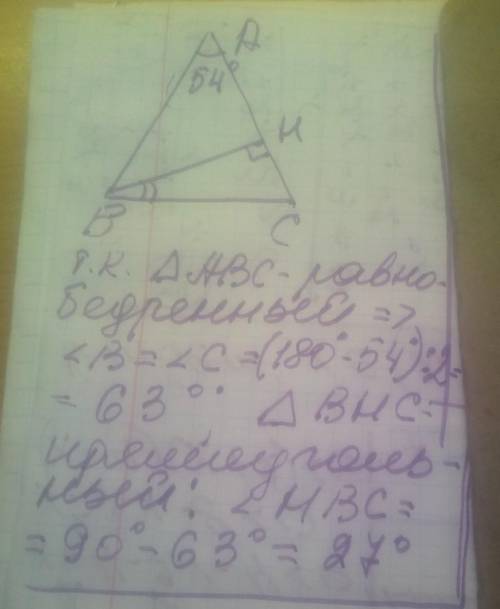 A
54°
H
B
C
т.к. △ABC - равно-
бедренный =>
∠B = ∠C = (180° - 54°) : 2 =
= 63°. △BHC -
прямоуголь-
ный: ∠HBC =
= 90° - 63° = 27°